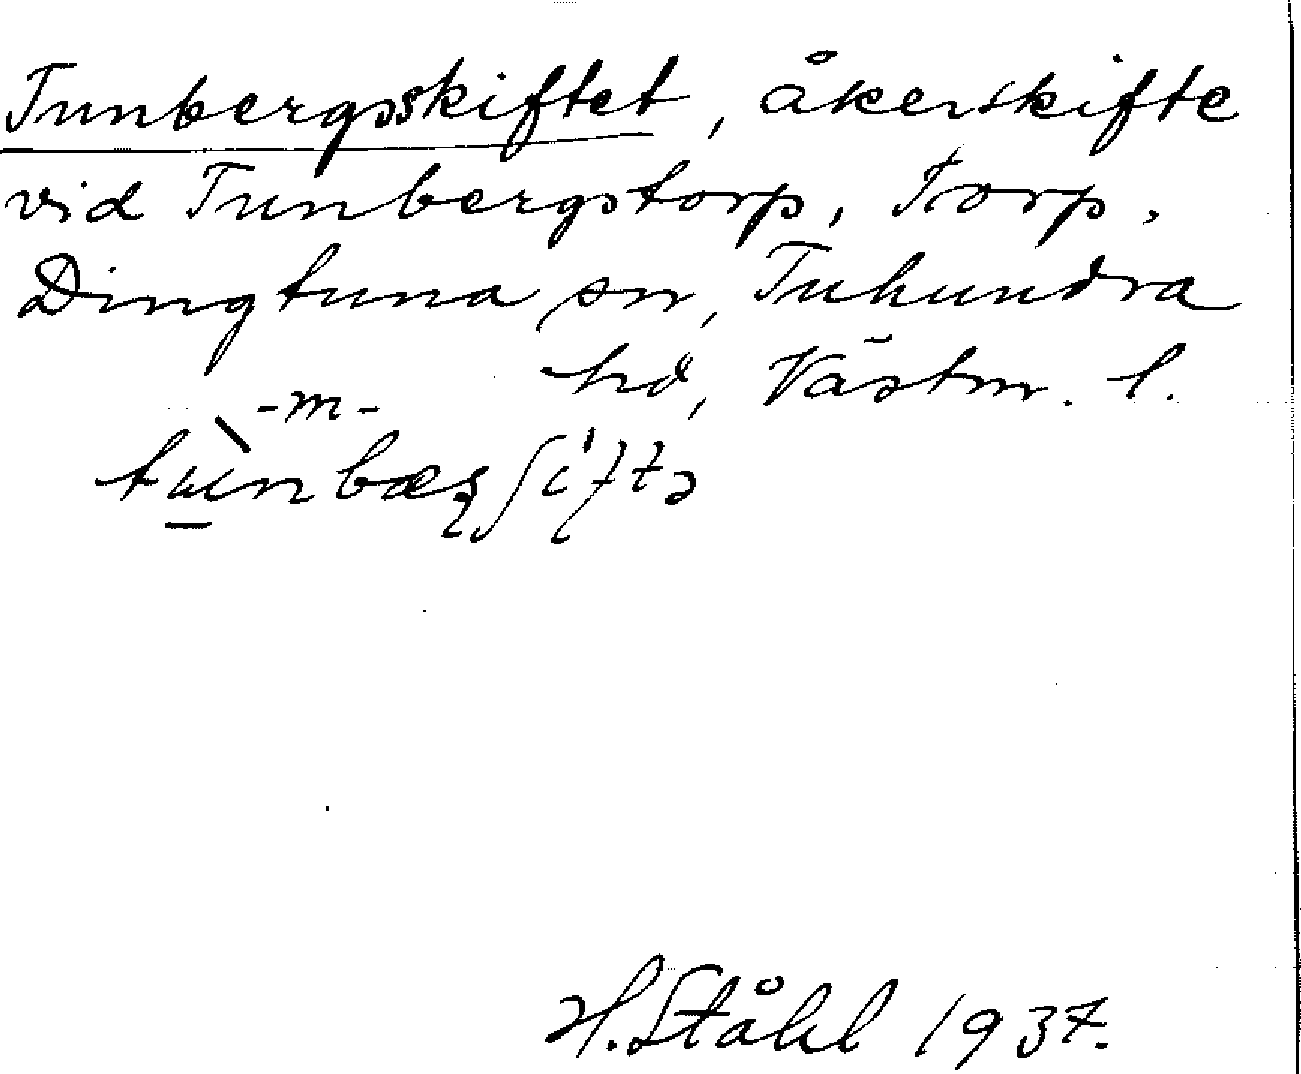 Tunbergsskiftet, åkerskifte
vid Tunbergstorp, Torp,
Dingtuna sn, Tuhundra
hd, Västm. l.
-m-
H. Ståhl 1937.